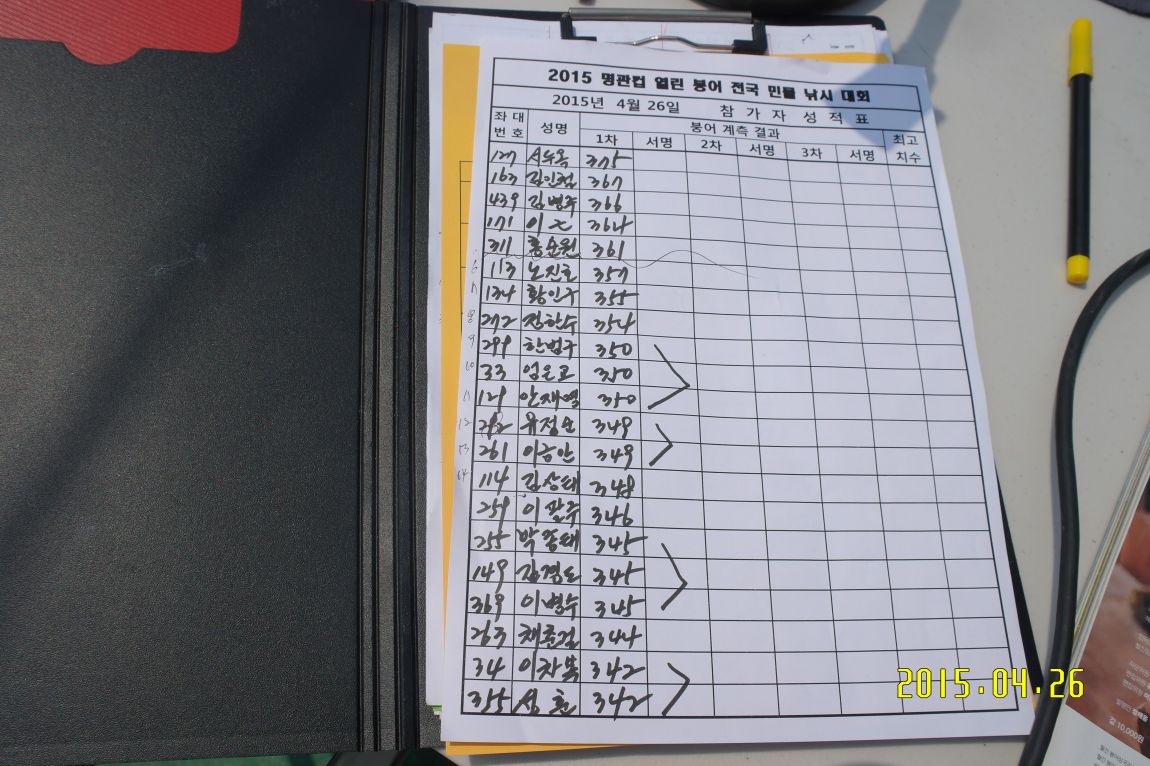 2015 명관컵 열린 붕어 전국 민물 낚시 대회
2015년 4월 26일 참 가 자 성 적 표
좌 대 번 호 성명 붕어 계측 결과 최고 치수
1차 서명 2차 서명 3차 서명
127 375
163 김인철 367
439 김병주 366
171 이 364
311 홍순원 361
6 113 노진호 357
7 134 황인구 355
8 272 정한수 354
9 299 한범구 350
10 33 350
11 121 안재열 350
12 349
13 261 이승안 349
14 114 김상태 348
259 이광주 346
255 박종태 345
149 345
369 이병수 345
263 344
34 342
355 성훈 342
2015.04.26
값 10,000원